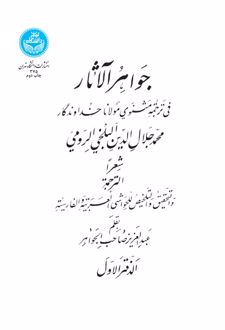 انتشارات دانشگاه تهران
۳۲۵
جواهر الآثار
فی ترجمة مثنوي مولانا خداوندگار
محمد جلال الدین البلخي الرومي
شعراً
الترجمة
والتحقیق والتلخیص للحواشی العربیة والفارسیة
بقلم
عبد العزیز صاحب الجواهر
الدفتر الاول